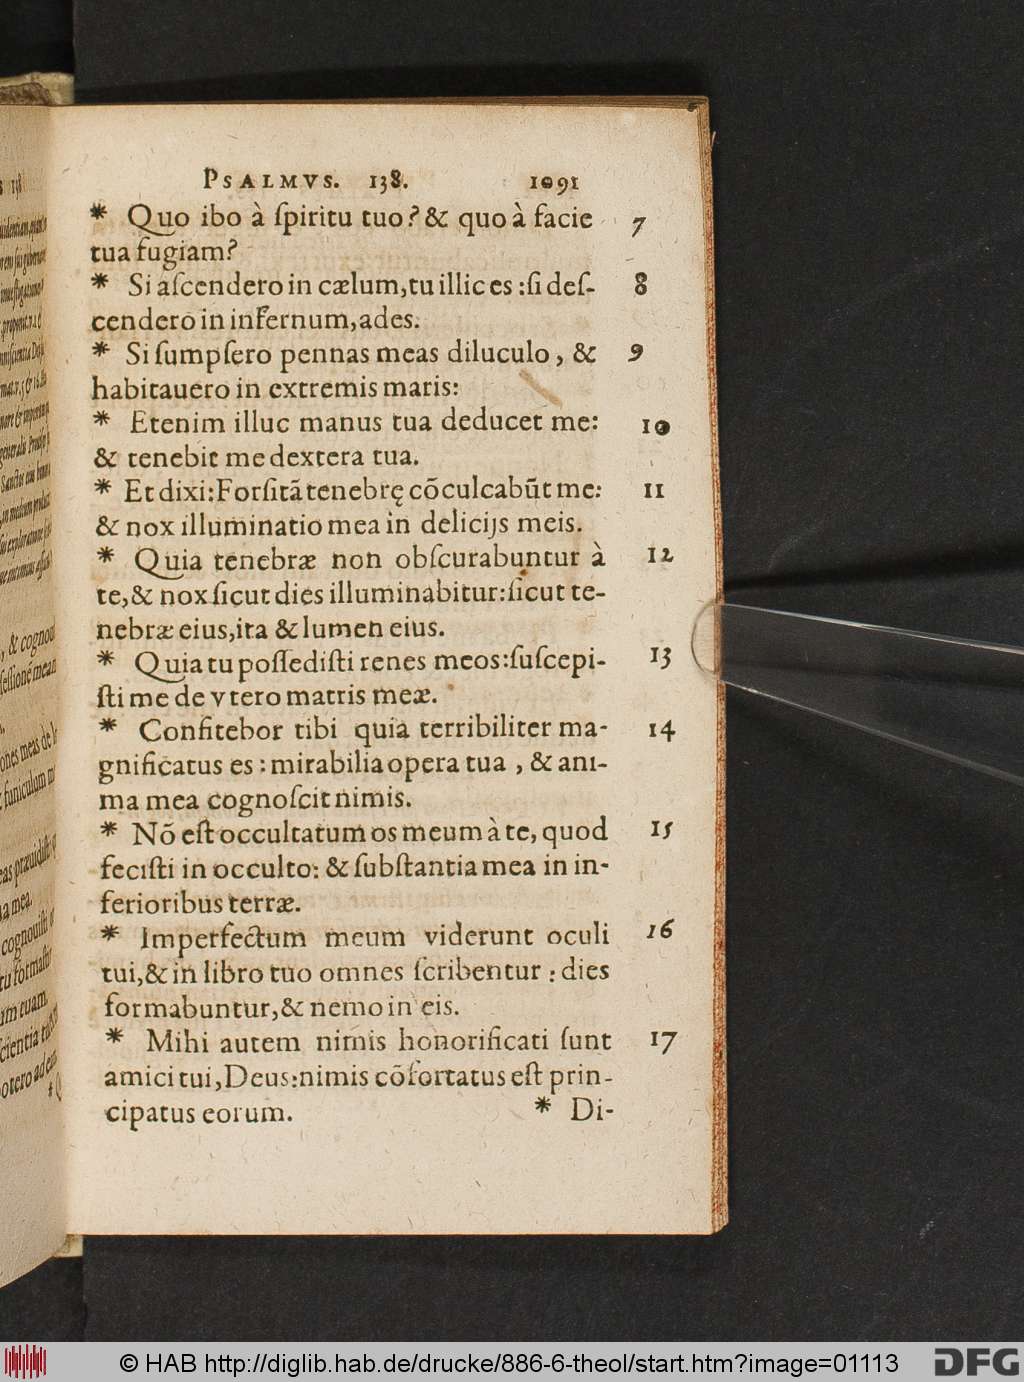 PSALMVS. 138. 1091
* Quo ibo à ſpiritu tuo? & quo à facie 7
tua fugiam?
* Si aſcendero in cælum, tu illic es: ſi deſ- 8
cendero in infernum, ades.
* Si ſumpſero pennas meas diluculo, & 9
habitauero in extremis maris:
* Etenim illuc manus tua deducet me: 10
& tenebit me dextera tua.
* Et dixi: Forſitã tenebrę cõculcabũt me: 11
& nox illuminatio mea in delicijs meis.
* Quia tenebræ non obſcurabuntur à 12
te, & nox ſicut dies illuminabitur: ſicut te-
nebræ eius, ita & lumen eius.
* Quia tu poſſediſti renes meos: ſuſcepi- 13
ſti me de vtero matris meæ.
* Confitebor tibi quia terribiliter ma- 14
gnificatus es: mirabilia opera tua, & ani-
ma mea cognoſcit nimis.
* Nõ eſt occultatum os meum à te, quod 15
feciſti in occulto: & ſubſtantia mea in in-
ferioribus terræ.
* Imperfectum meum viderunt oculi 16
tui, & in libro tuo omnes ſcribentur: dies
formabuntur, & nemo in eis.
* Mihi autem nimis honorificati ſunt 17
amici tui, Deus: nimis cõfortatus eſt prin-
cipatus eorum. * Di-
© HAB http://diglib.hab.de/drucke/886-6-theol/start.htm?image=01113 DFG